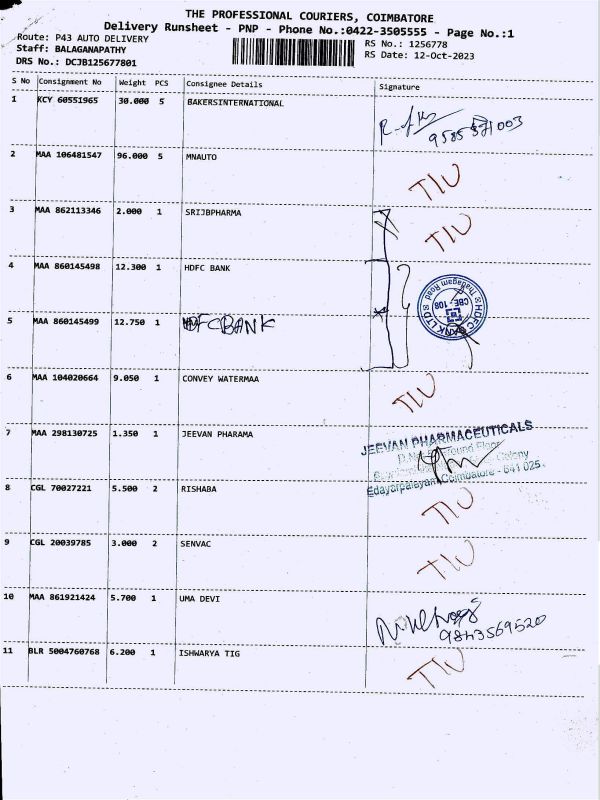 THE PROFESSIONAL COURIERS, COIMBATORE
Delivery Runsheet - PNP - Phone No.:0422-3505555 - Page No.:1
Route: P43 AUTO DELIVERY
RS No.: 1256778
Staff: BALAGANAPATHY
RS Date: 12-Oct-2023
DRS No.: DCJB125677801
S No Consignment No Weight PCS Consignee Details Signature
1 KCY 60551965 30.000 5 BAKERSINTERNATIONAL
9585371003
2 MAA 106481547 96.000 5 MNAUTO
TIU
3 MAA 862113346 2.000 1 SRIJBPHARMA
TIU
4 MAA 860145498 12.300 1 HDFC BANK
HDFC BANK LTD
Thadagam Road
CBE-108
5 MAA 860145499 12.750 1 HDFC BANK
6 MAA 104020664 9.050 1 CONVEY WATERMAA
TIU
7 MAA 298130725 1.350 1 JEEVAN PHARAMA
JEEVAN PHARMACEUTICALS
Ground Floor
Colony
Edayarpalayam, Coimbatore - 641 025.
8 CGL 70027221 5.500 2 RISHABA
TIU
9 CGL 20039785 3.000 2 SENVAC
TIU
10 MAA 861921424 5.700 1 UMA DEVI
9843569520
11 BLR 5004760768 6.200 1 ISHWARYA TIG
TIU